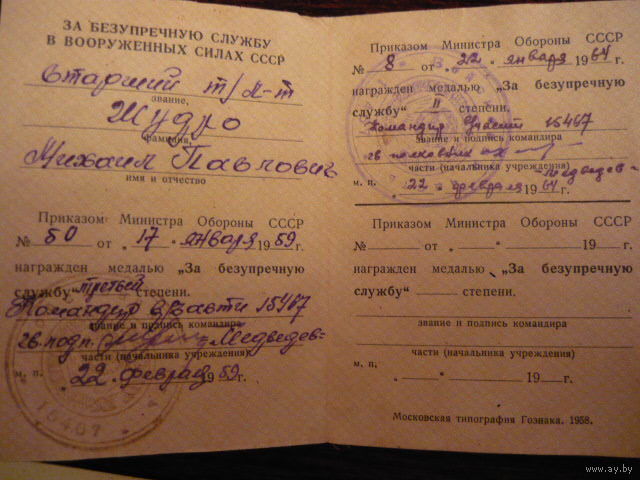 ЗА БЕЗУПРЕЧНУЮ СЛУЖБУ
В ВООРУЖЕННЫХ СИЛАХ СССР
Старший т/л-т
звание,
Шудро
фамилия,
Михаил Павлович
имя и отчество
Приказом Министра Обороны СССР
№ 50 от „17“ января 1959 г.
награжден медалью „За безупречную
службу“ третьей степени.
Командир в/части 15467
звание и подпись командира
гв. подп. Медведев
части (начальника учреждения)
м. п. „22“ февраля 1959 г.
15467
Приказом Министра Обороны СССР
№ 8 от „22“ января 1964 г.
награжден медалью „За безупречную
службу“ II степени.
Командир в/части 15467
звание и подпись командира
гв. полковник
части (начальника учреждения)
Медведев
м. п. „22“ февраля 1964 г.
Приказом Министра Обороны СССР
№ от „ “ 19 г.
награжден медалью „За безупречную
службу“ степени.
звание и подпись командира
части (начальника учреждения)
м. п. „ “ 19 г.
Московская типография Гознака. 1958.
www.ay.by